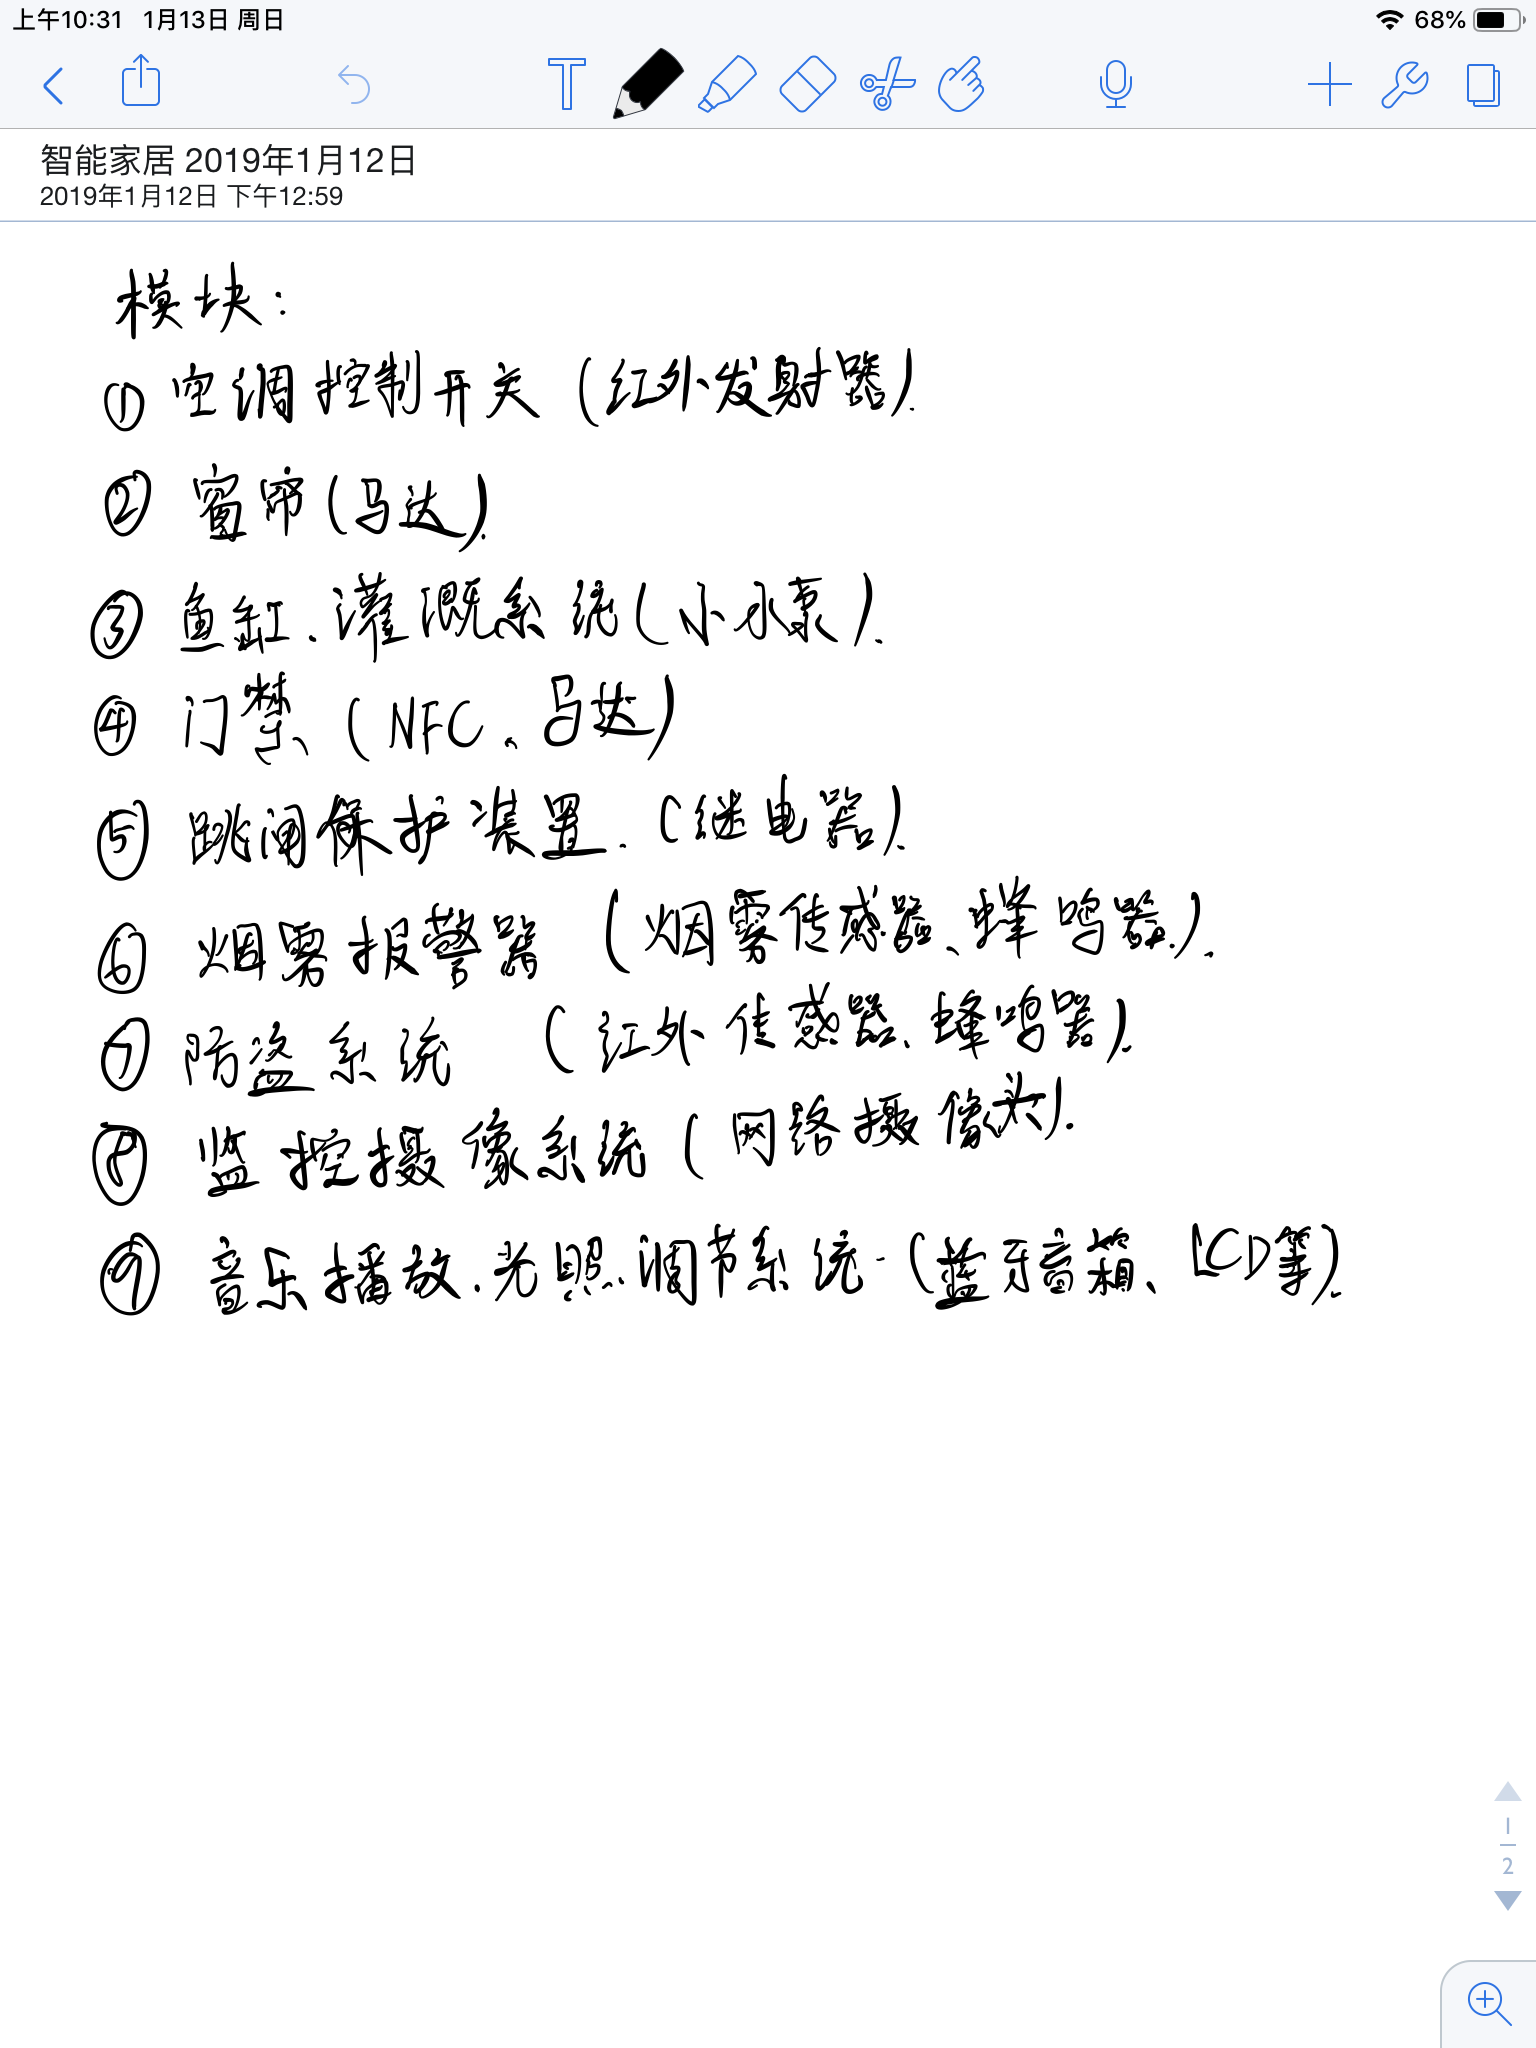 上午10:31 1月13日 周日 68%
智能家居 2019年1月12日
2019年1月12日 下午12:59
模块：
① 空调控制开关（红外发射器）.
② 窗帘（马达）.
③ 鱼缸、灌溉系统（小水泵）.
④ 门禁（NFC、马达）
⑤ 跳闸保护装置.（继电器）.
⑥ 烟雾报警器（烟雾传感器、蜂鸣器）.
⑦ 防盗系统（红外传感器、蜂鸣器）.
⑧ 监控摄像系统（网络摄像头）.
⑨ 音乐播放、光照调节系统-（蓝牙音箱、LCD等）.
1
2